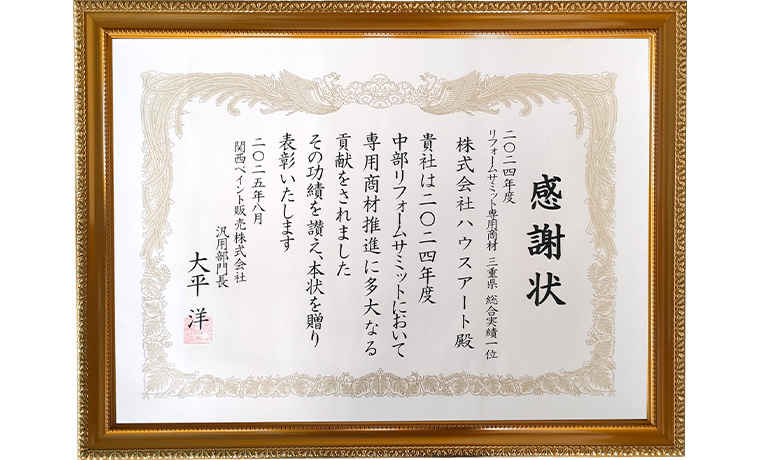 感謝状
二〇二四年度
リフォームサミット専用商材 三重県 総合実績一位
株式会社ハウスアート殿
貴社は二〇二四年度
中部リフォームサミットにおいて
専用商材推進に多大なる
貢献をされました
その功績を讃え、本状を贈り
表彰いたします
二〇二五年八月
関西ペイント販売株式会社
汎用部門長
大平 洋